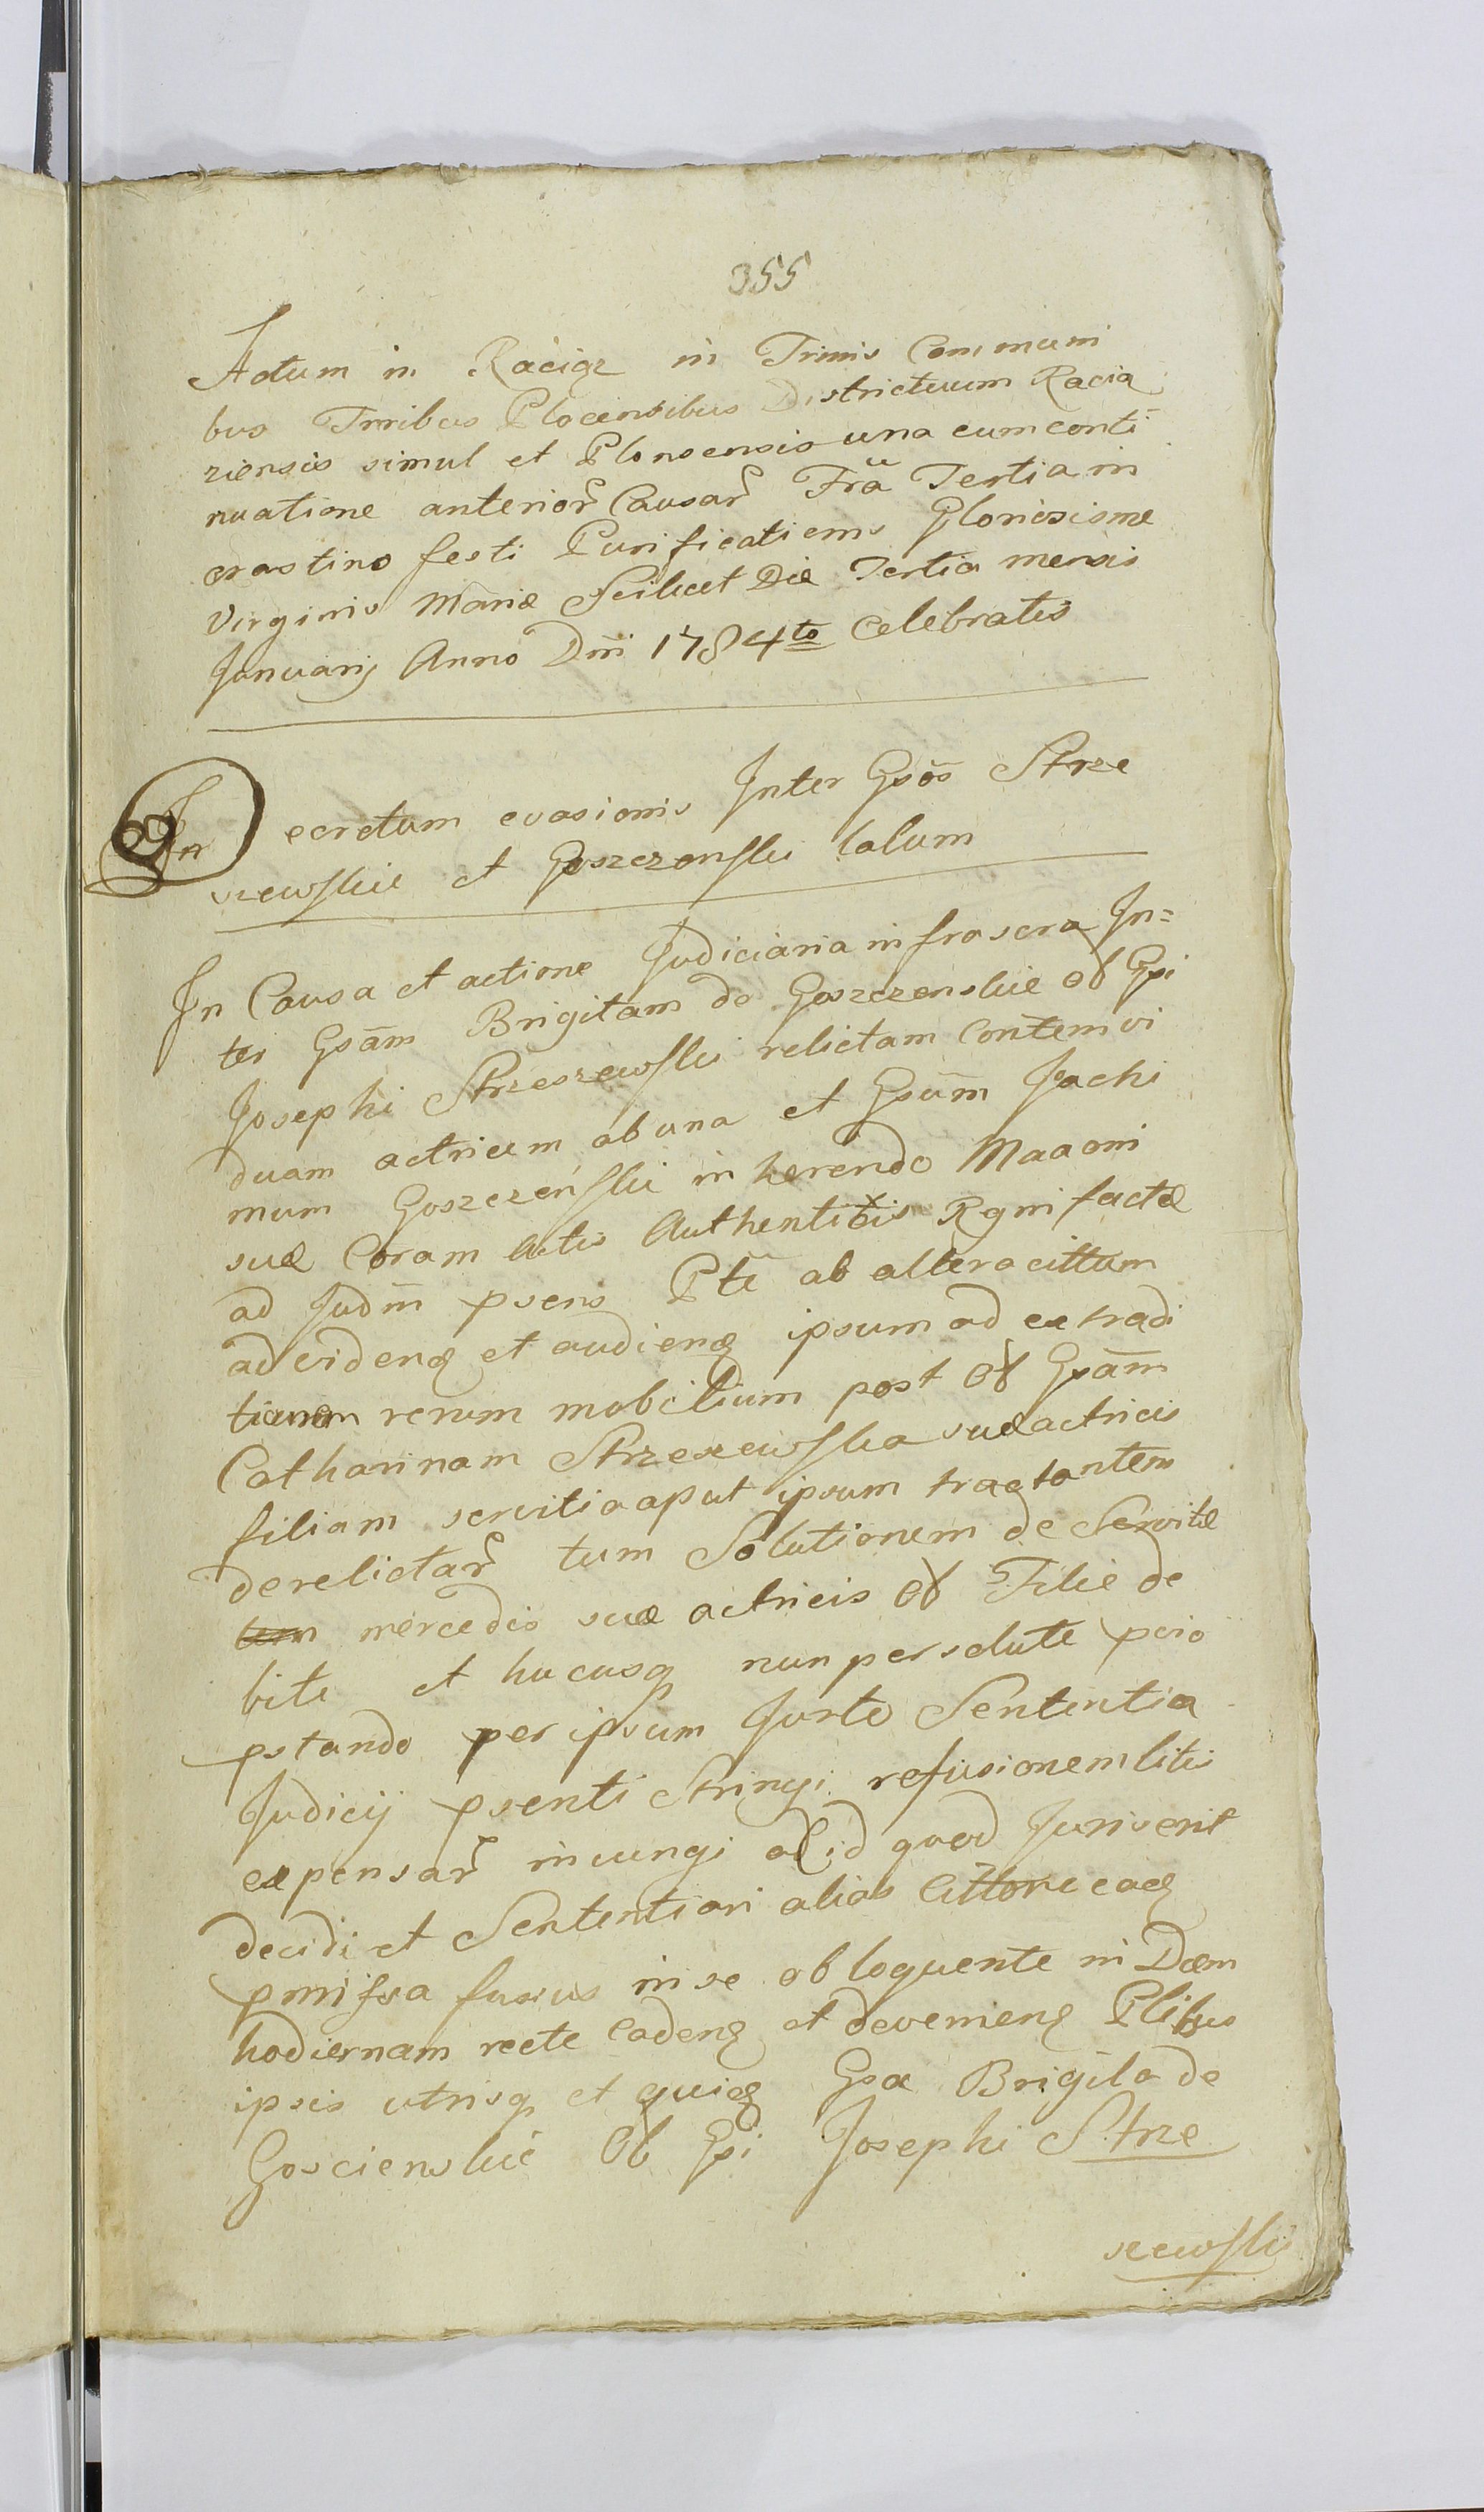 355
Actum in Raciąz in Trinis Communi
bus Trribus Plocensibus Districtuum Racią
ziensis simul et Plonsensis una cum conti
nuatione anterior Causar Fra Tertia in
crastino festi Purificationis Gloriosisme
Virginis Mariæ Scilicet Die Tertia mensis
Januarij Anno Dni 1784to Celebratis
Decretum evasionis Inter Gsos Strze
szewskie et Goszczonski latum
In Causa et actione Judiciaria infrascra In=
ter Gsam Brigitam de Goszczenskie ol Gsi
Josephi Strzeszewski relictam Contem vi
duam actricem ab una et Gsum Joachi
mum Goszczeński in herendo Maaoni
suæ Coram Actis Authenticis Rgni factæ
ad Judm psens Pte ab altera cittum
ad videnq et audienq ipsum ad extradi
tionem rerum mobilium post ol Gsam
Catharinam Strzeszewska suæ actricis
filiam servitia aput ipsum tractantem
derelictar tum Solutionem de Servitæ
mercedis suæ actricis ol Filie de
bite et hucusq nun persolute
pstando per ipsum Jurto Sententia
Judicij psenti Stringi refusionem litis
expensar incungi al id quod Juris erit
decidi et Sententiari alias
pmissa fusius in se obloquente in Dæm
hodiernam recte Cadenq et devenienq Ptibus
ipsis utrisq et quidq Gsa Brigita de
Goscienskie ol Gsi Josephi Strze
szewski